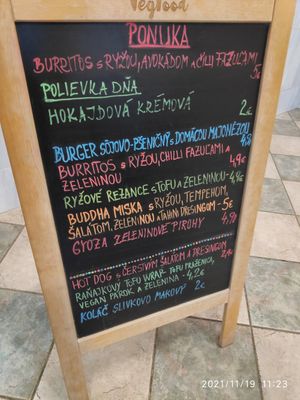 Vegfood
PONUKA
BURRITOS S RYŽOU, AVOKÁDOM A ČILLI FAZUĽAMI
5€
POLIEVKA DŇA
HOKAJDOVÁ KRÉMOVÁ
2€
BURGER SÓJOVO-PŠENIČNÝ S DOMÁCOU MAJONÉZOU
4,5€
BURRITOS S RYŽOU, CHILLI FAZUĽAMI A
ZELENINOU 4,9€
RYŽOVÉ REZANCE S TOFU A ZELENINOU-4,9€
BUDDHA MISKA S RYŽOU, TEMPEHOM,
ŠALÁTOM, ZELENINOU A TAHINI DRESINGOM - 5€
GYOZA ZELENINOVÉ PIROHY 4,5€
HOT DOG S ČERSTVÝM ŠALÁTOM A DRESINGOM
RAŇAJKOVÝ TOFU WRAP: TOFU PRAŽENICA,
VEGAN PÁROK A ZELENINA - 4,2€
KOLÁČ SLIVKOVO MAKOVÝ 2€
2021/11/19 11:23